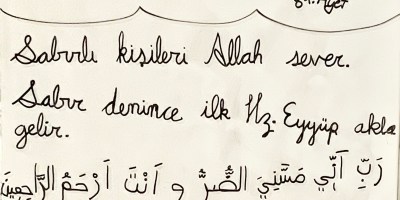 Sabırlı kişileri Allah sever.
Sabır denince ilk Hz. Eyyüp akla
gelir.
رَبِّ اَنِّي مَسَّنِيَ الضُّرُّ وَ اَنْتَ اَرْحَمُ الرَّاحِمِينَ